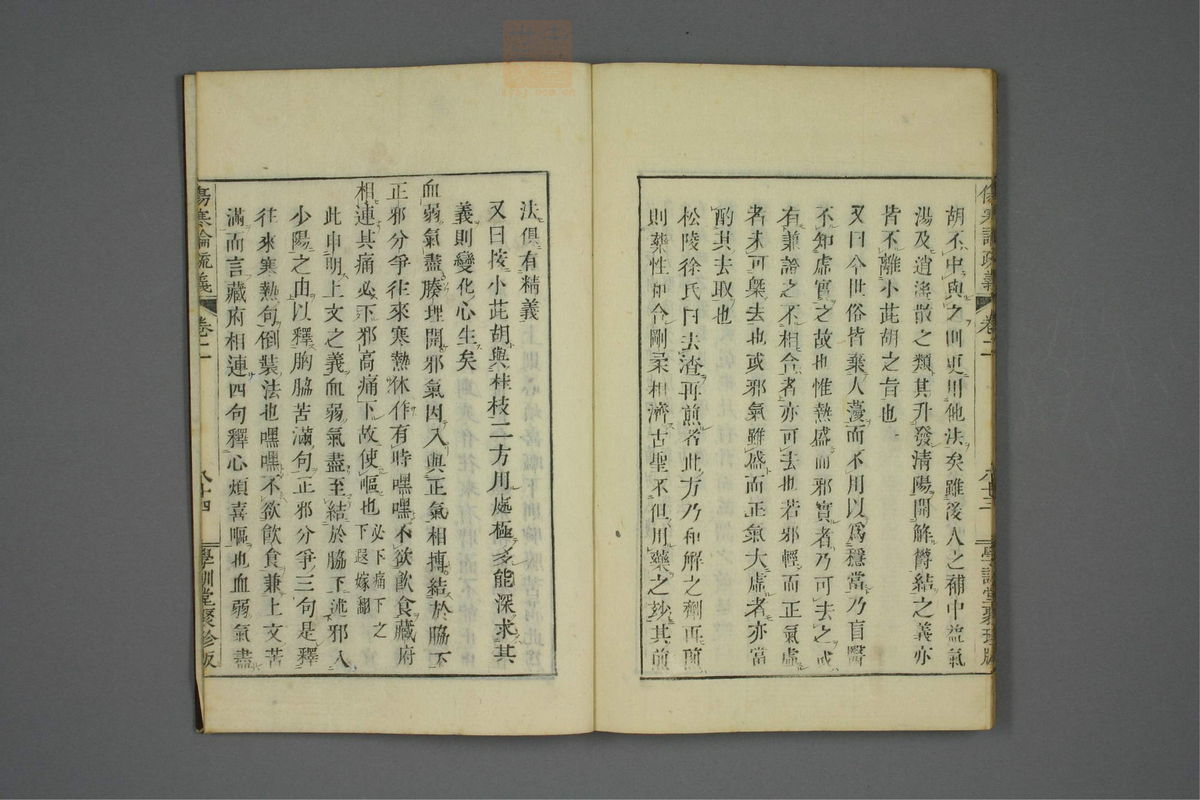 傷寒論疏義 卷二 八十三 學訓堂聚珍版
胡不中與之則更用他法矣雖後人之補中益氣
湯及逍遙散之類其升發清陽開解鬱結之義亦
皆不離小茈胡之旨也
又曰今世俗皆棄人蓡而不用以爲穩當乃盲醫
不知虛實之故也惟熱盛而邪實者乃可去之或
有兼證之不相合者亦可去也若邪輕而正氣虛
者未可槩去也或邪氣雖盛而正氣大虛者亦當
酌其去取也
松陵徐氏曰去渣再煎者此方乃和解之劑再煎
則藥性和合剛柔相濟古聖不但用藥之妙其煎
法俱有精義
又曰按小茈胡與桂枝二方用處極多能深求其
義則變化心生矣
血弱氣盡腠理開邪氣因入與正氣相搏結於脇下
正邪分爭往來寒熱休作有時嘿嘿不欲飮食藏府
相連其痛必下邪高痛下故使嘔也 必下痛下之
下遐嫁翻
此申明上文之義血弱氣盡至結於脇下述邪入
少陽之由以釋胸脇苦滿句正邪分爭三句是釋
往來寒熱句倒裝法也嘿嘿不欲飮食兼上文苦
滿而言藏府相連四句釋心煩喜嘔也血弱氣盡
傷寒論疏義 卷二 八十四 學訓堂聚珍版